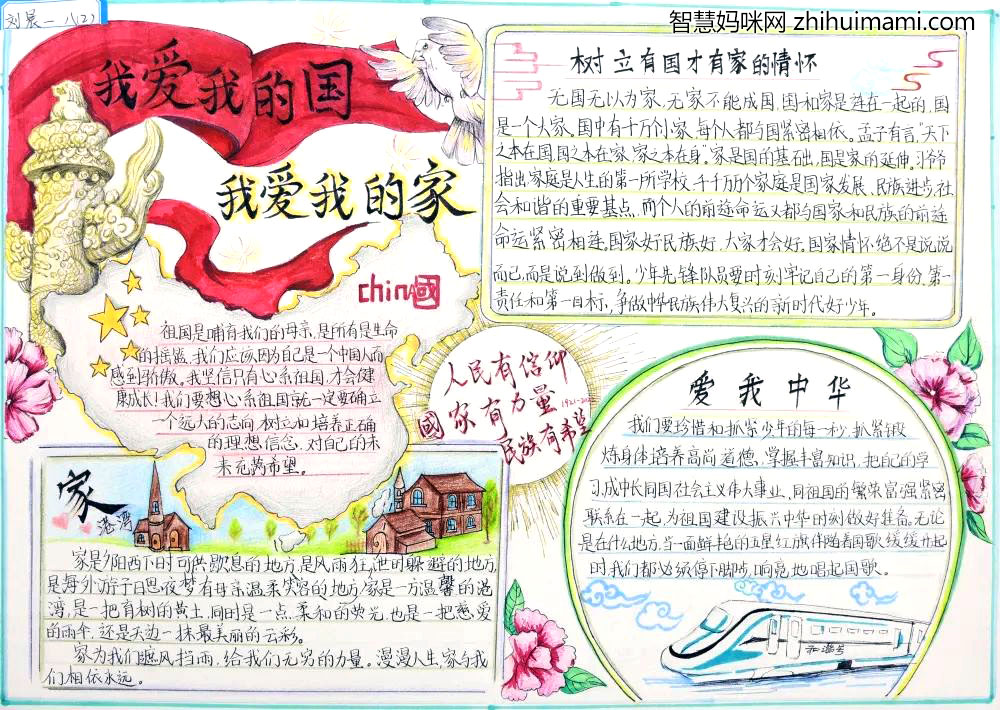 刘晨一 八(2)
智慧妈咪网 zhihuimami.com
我爱我的国
我爱我的家
china國
祖国是哺育我们的母亲,是所有是生命
的摇篮,我们应该因为自己是一个中国人而
感到骄傲。我坚信只有心系祖国,才会健
康成长!我们要想心系祖国就一定要确立
一个远大的志向,树立和培养正确
的理想信念,对自己的未
来充满希望。
树立有国才有家的情怀
无国无以为家,无家不能成国,国和家是连在一起的,国
是一个大家。国中有千万个小家,每个人都与国紧密相依。孟子有言,"天下
之本在国,国之本在家,家之本在身。"家是国的基础,国是家的延伸。习爷爷
指出,家庭是人生的第一所学校,千千万万个家庭是国家发展、民族进步,社
会和谐的重要基点,而个人的前途命运又都与国家和民族的前途
命运紧密相连,国家好,民族好,大家才会好。国家情怀绝不是说说
而已,而是说到做到。少年先锋队员要时刻牢记自己的第一身份、第一
责任和第一目标,争做中华民族伟大复兴的新时代好少年。
人民有信仰
國家有力量
民族有希望
爱我中华
我们要珍惜和抓紧少年的每一秒,抓紧锻
炼身体,培养高尚道德,掌握丰富知识,把自己的学
习,成中长同国社会主义伟大事业,同祖国的繁荣富强紧密
联系在一起,为祖国建设振兴中华时刻做好准备。无论
是在什么地方,当一面鲜艳的五星红旗伴随着国歌缓缓升起
时,我们都必须停下脚步,响亮地唱起国歌。
和谐号
家
港湾
家是夕阳西下时可供歇息的地方,是风雨狂泄时躲避的地方,
是海外游子日思夜梦有母亲温柔笑容的地方家是一方温馨的港
湾,是一把育树的黄土,同时是一点柔和的荧光,也是一把慈爱
的雨伞,还是天边一抹最美丽的云彩。
家为我们遮风挡雨,给我们无穷的力量。漫漫人生,家与我
们相依永远。